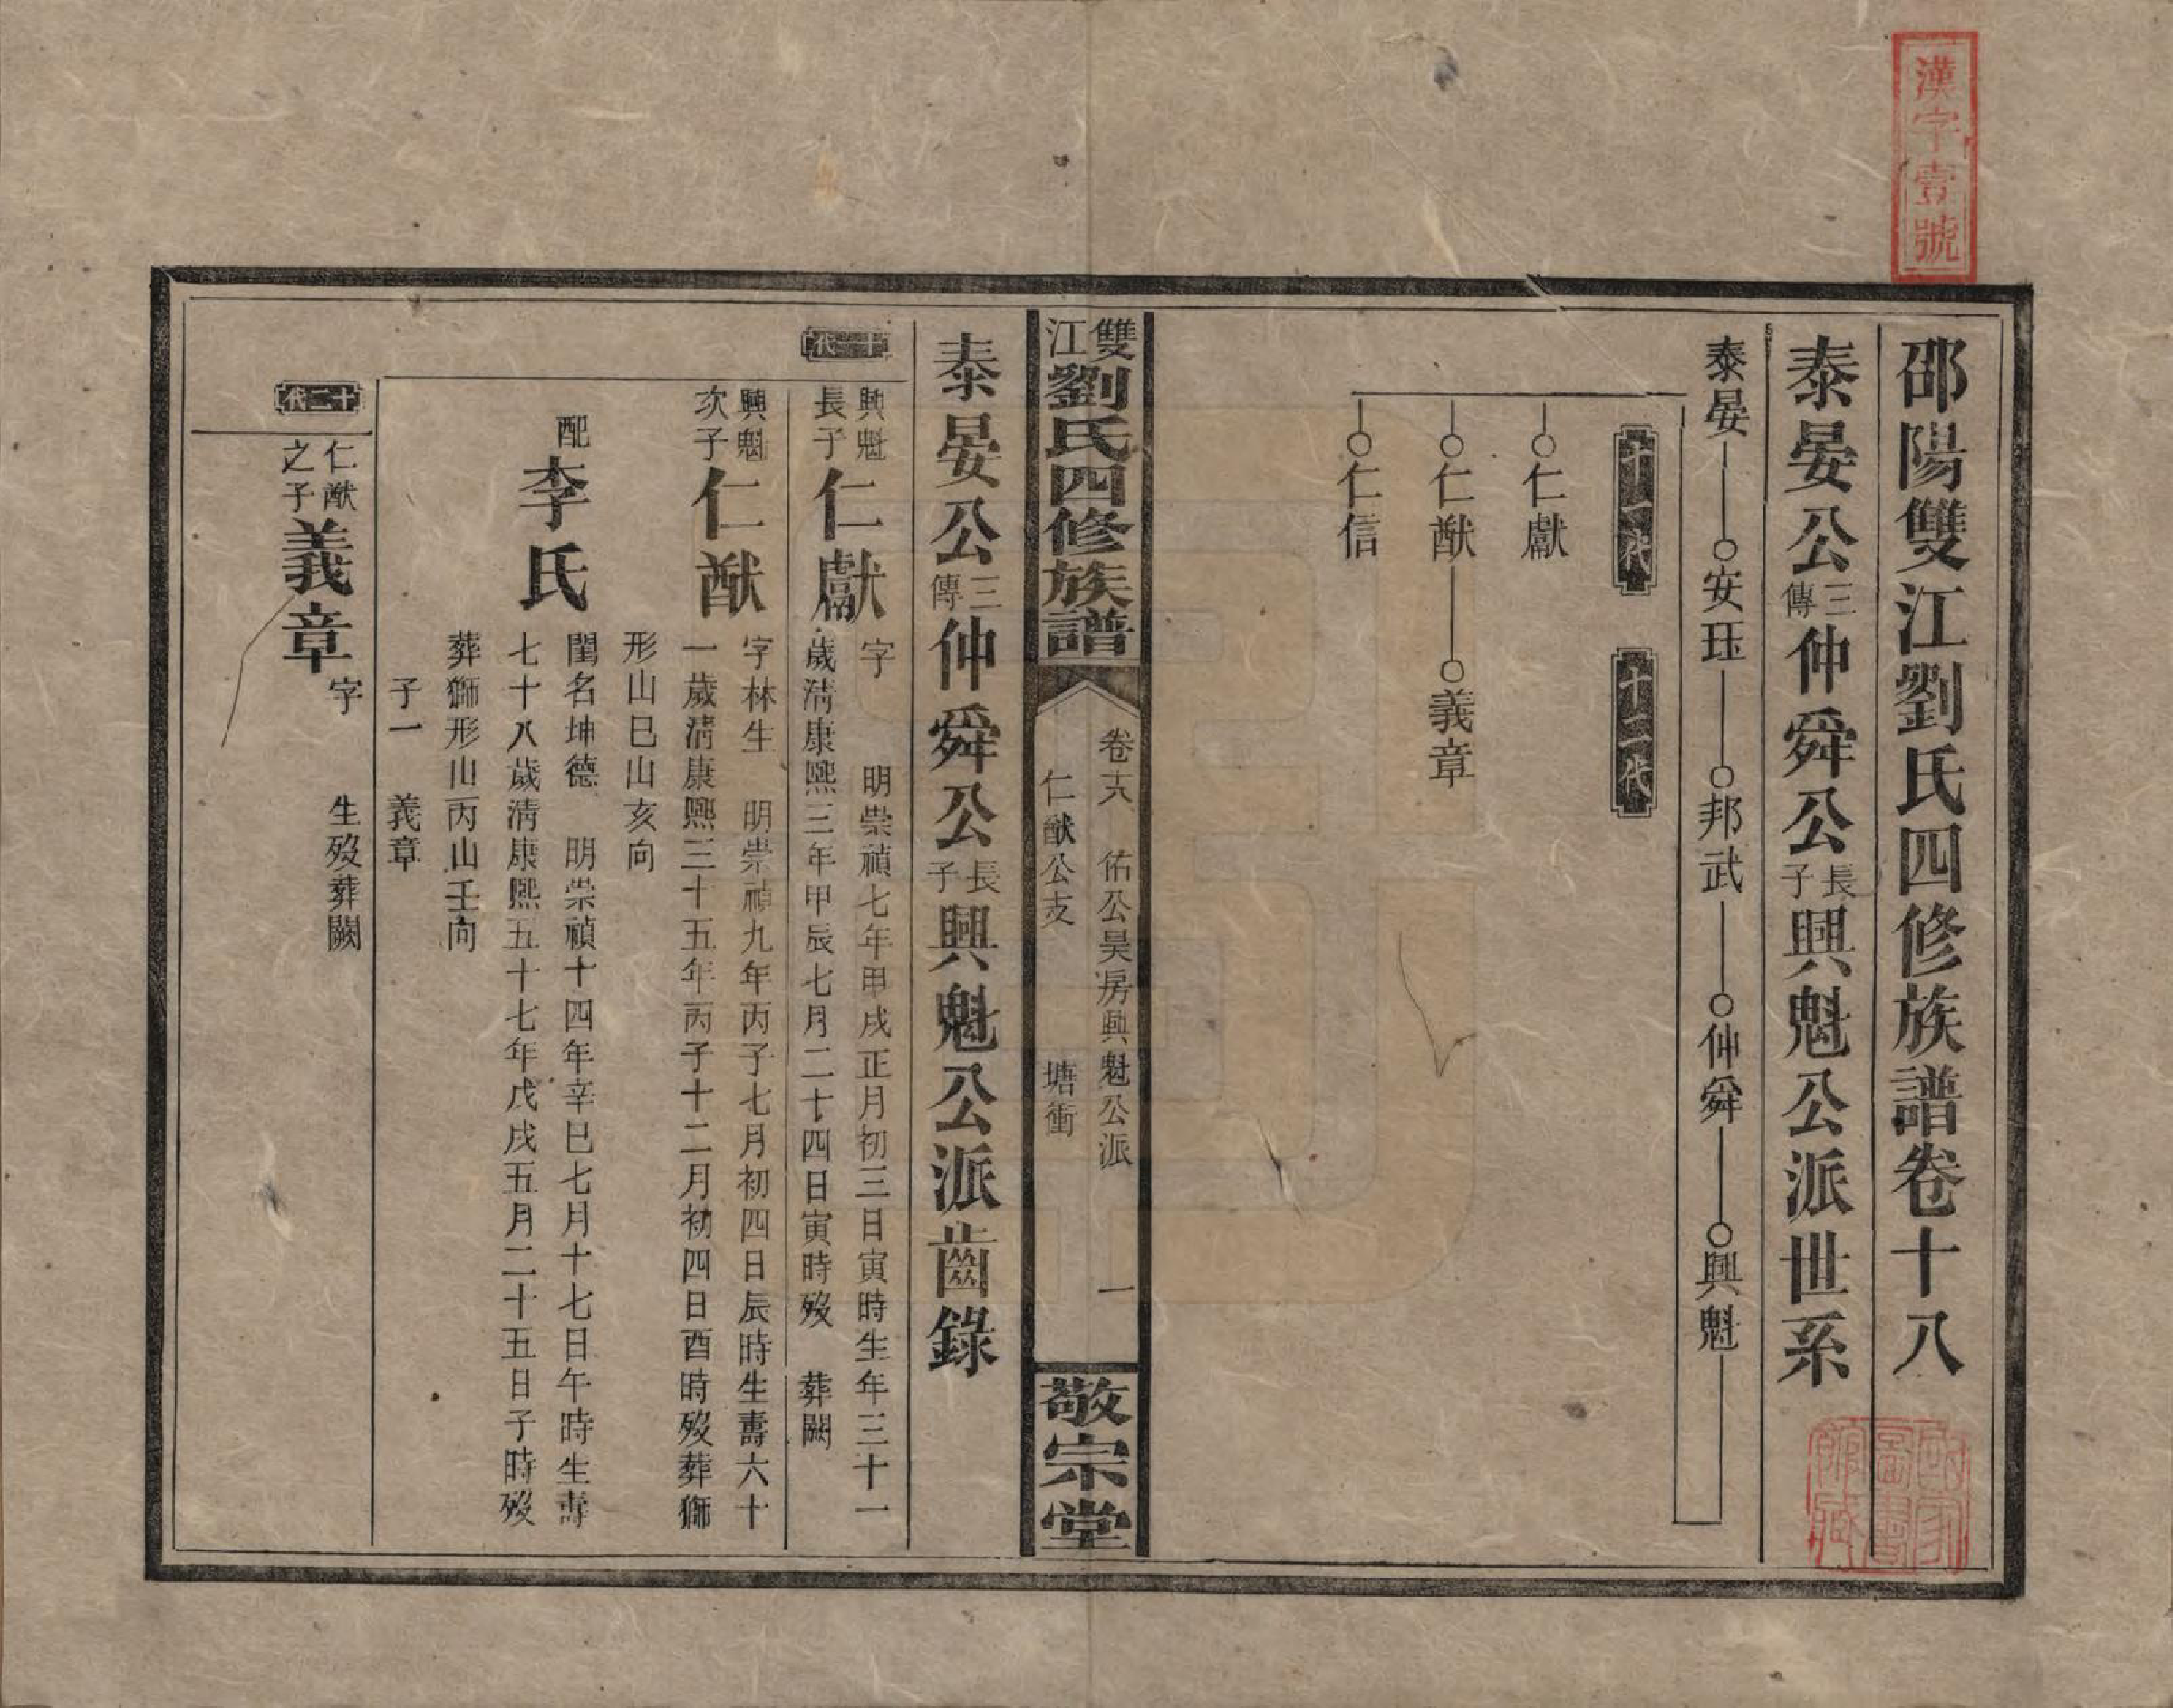 漢字壹號
邵陽雙江劉氏四修族譜卷十八
泰晏公三傳仲舜公長子興魁公派世系
泰晏 安珏 邦武 仲舜 興魁
十一代 十二代
仁獻
仁猷 義章
仁信
雙江劉氏四修族譜
卷十八 佑公昊房興魁公派 一
仁猷公支 塘衝
敬宗堂
泰晏公三傳仲舜公長子興魁公派齒錄
十一代
興魁長子仁獻
字 明崇禎七年甲戌正月初三日寅時生年三十一
歲淸康熙三年甲辰七月二十四日寅時歿 葬闕
興魁次子仁猷
字林生 明崇禎九年丙子七月初四日辰時生壽六十
一歲淸康熙三十五年丙子十二月初四日酉時歿葬獅
形山巳山亥向
配李氏
閨名坤德 明崇禎十四年辛巳七月十七日午時生壽
七十八歲淸康熙五十七年戊戌五月二十五日子時歿
葬獅形山丙山壬向
子一 義章
十二代
仁猷之子義章
字 生歿葬闕
國家圖書館藏